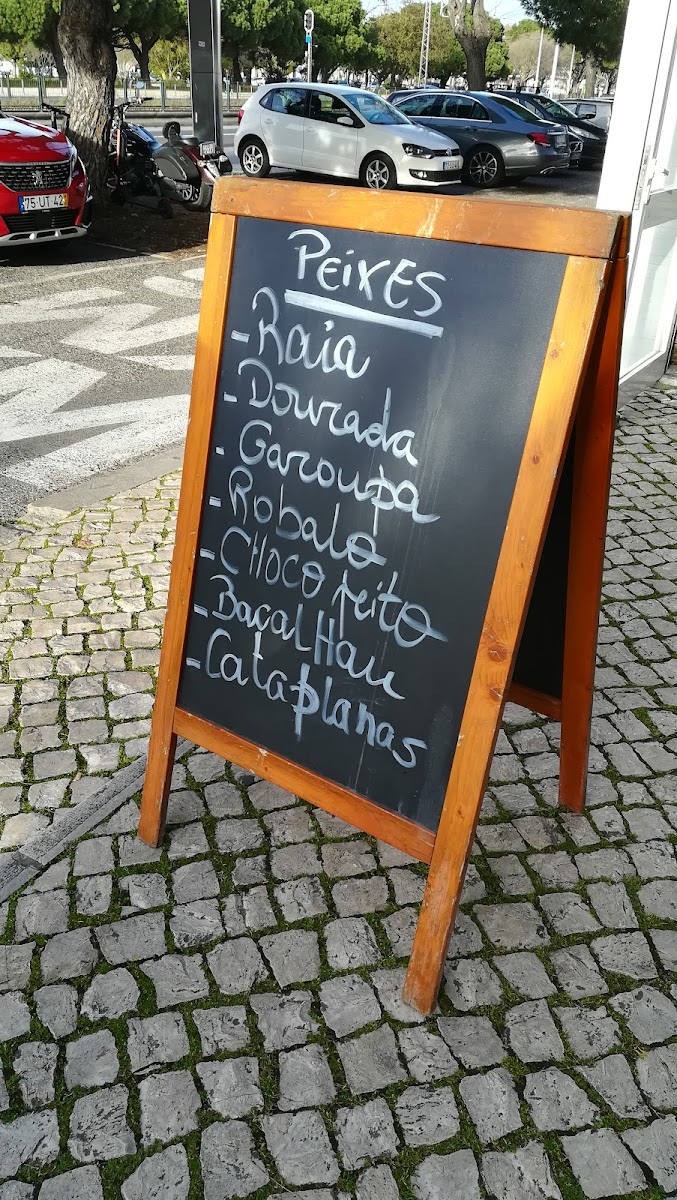 Peixes
- Raia
- Dourada
- Garoupa
- Robalo
- Choco frito
- Baçalhau
- Cataplanas
75·UT·42